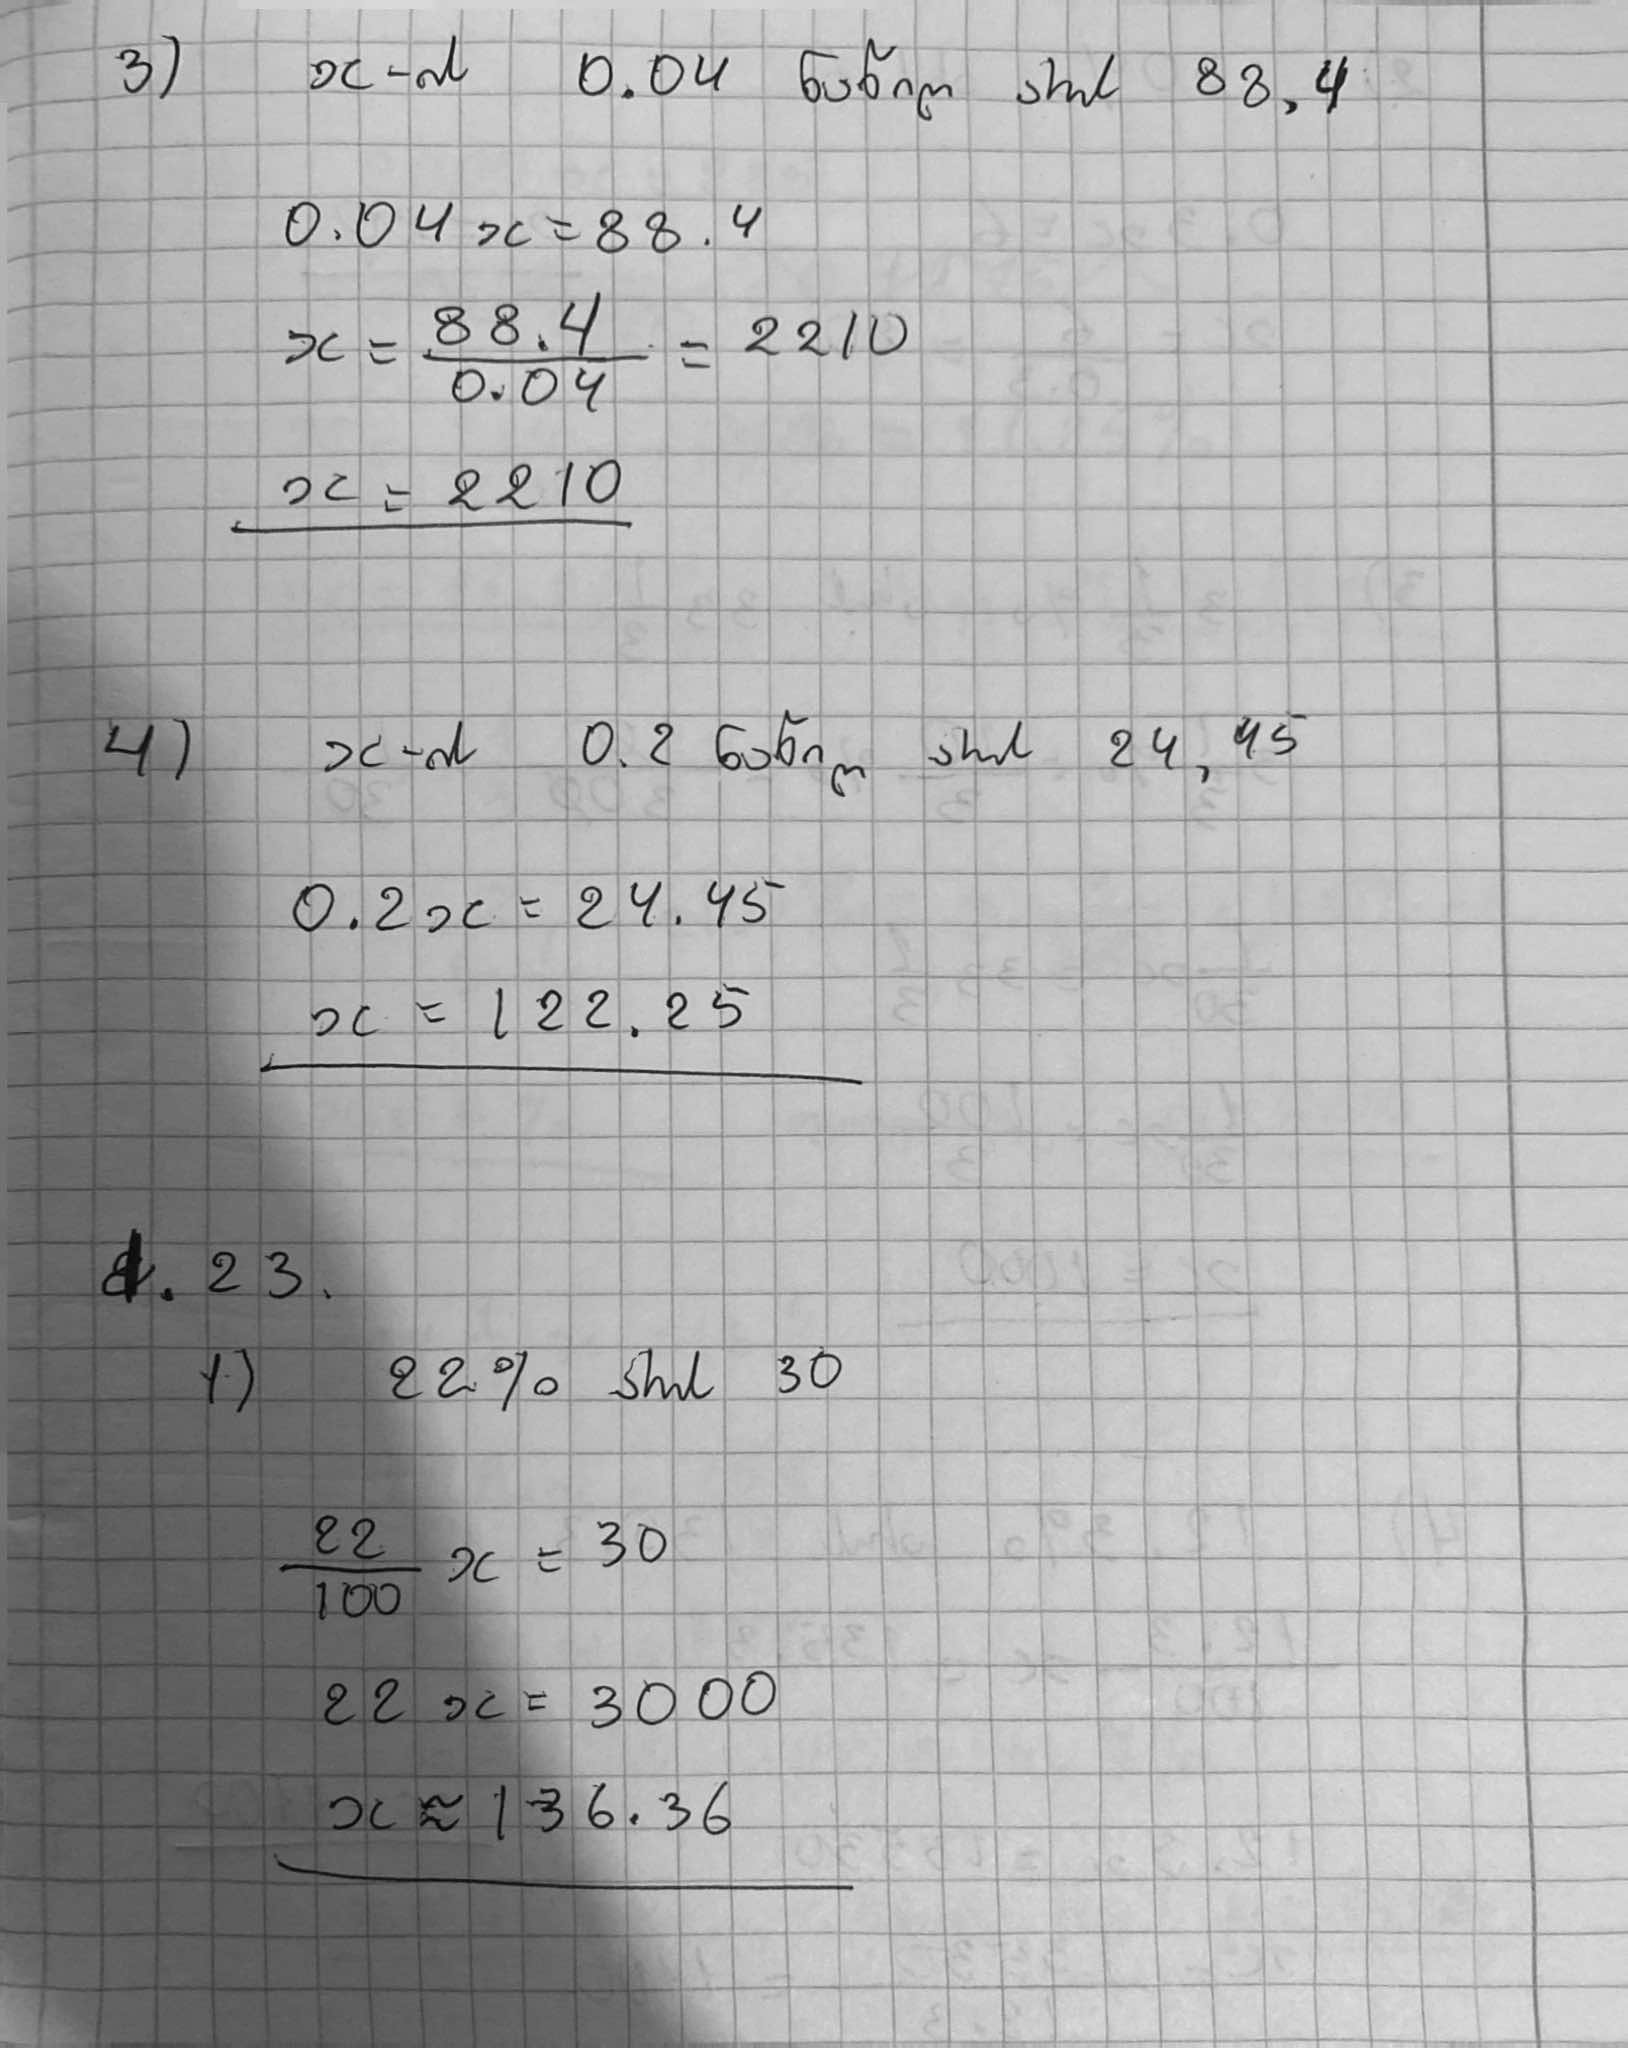 3) x-ის 0.04 ნაწილი არის 88,4
0.04x=88.4
x = 88.4/0.04 = 2210
x = 2210
4) x-ის 0.2 ნაწილი არის 24,45
0.2x = 24.45
x = 122.25
d.23.
1) 22% არის 30
22/100 x = 30
22x = 3000
x ≈ 136.36